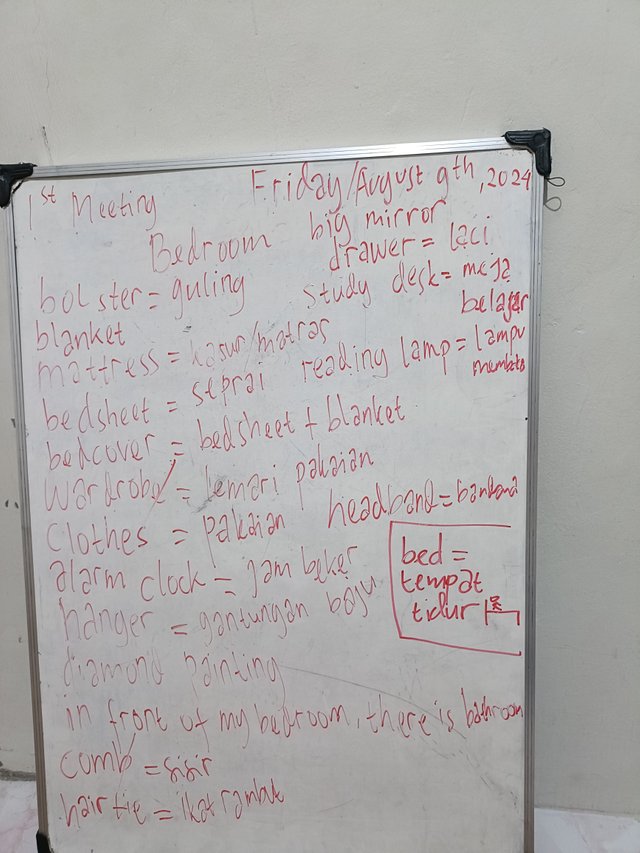 1st Meeting
Friday/August 9th, 2024
Bedroom
big mirror
drawer = laci
bolster = guling
study desk = meja belajar
blanket
mattress = kasur/matras
reading lamp = lampu
bedsheet = seprai
bedcover = bedsheet + blanket
wardrobe = lemari pakaian
clothes = pakaian
headband = bandana
alarm clock = jam beker
bed =
tempat
tidur
hanger = gantungan baju
diamond painting
in front of my bedroom, there is bathroom
comb = sisir
hair tie = ikat rambut